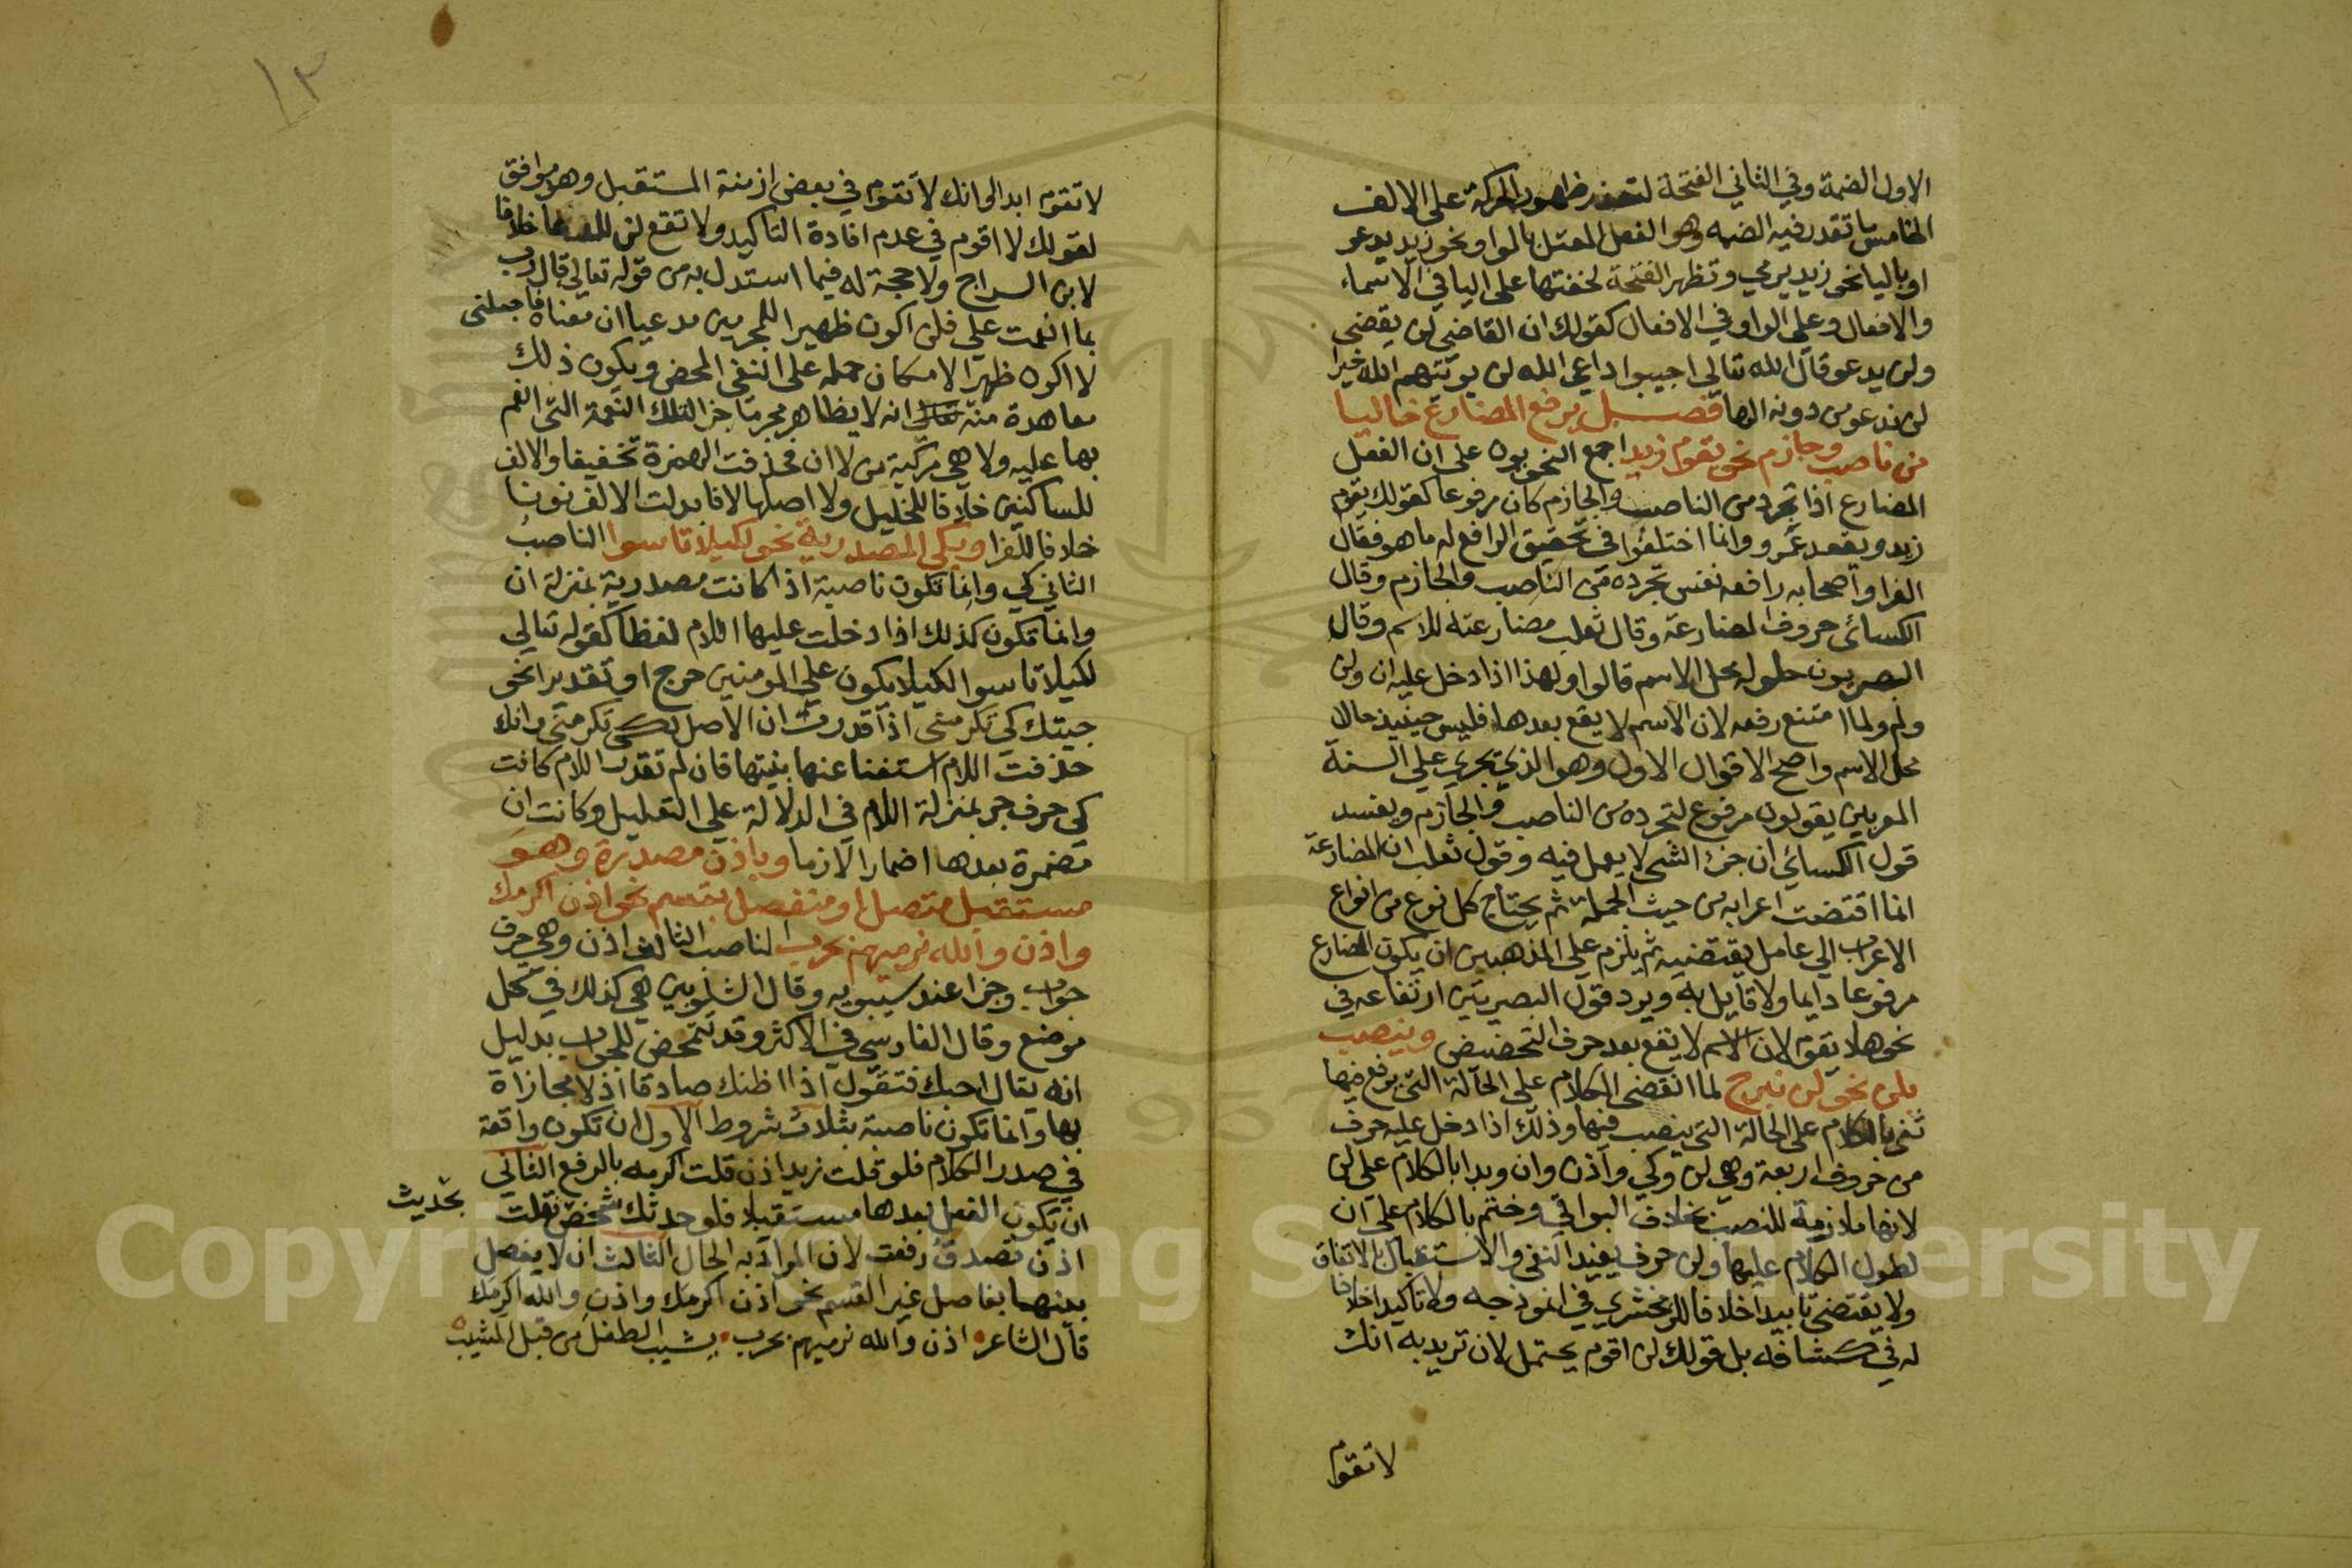 الاول الضمة وفي الثاني الفتحة لتعذر ظهور الحركة على الالف
الخامس ما تقدر فيه الضمه وهو الفعل المعتل بالواو نحو زيد يدعو
او باليا نحو زيد يرمي وتظهر الفتحة لخفتها على اليا في الاسماء
والافعال وعلى الواو في الافعال كقولك ان القاضي لن يقضي
ولن يدعو قال الله تعالي اجيبوا داعي الله لن يوتيهم الله خيرا
لن ندعو من دونه الها فصل يرفع المضارع خاليا
من ناصب وجازم نحو يقوم زيد اجمع النحويون على ان الفعل
المضارع اذا تجرد من الناصب والجازم كان مرفوعا كقولك يقوم
زيد ويقعد عمرو وانما اختلفوا في تحقيق الرافع له ما هو فقال
الفرا واصحابه رافعه نفس تجرده من الناصب والجازم وقال
الكسائي حروف المضارعة وقال ثعلب مضارعته للاسم وقال
البصريون حلوله محل الاسم قالوا ولهذا اذا دخل عليه ان ولن
ولم ولما امتنع رفعه لان الاسم لا يقع بعدها فليس حينيذ حالا
محل الاسم واصح الاقوال الاول وهو الذي يجري علي السنة
المعربين يقولون مرفوع لتجرده من الناصب والجازم ويفسد
قول الكسائي ان جزء الشي لا يعمل فيه وقول ثعلب ان المضارعة
انما اقتضت اعرابه من حيث الجملة ثم يحتاج كل نوع من انواع
الاعراب الي عامل يقتضيه ثم يلزم علي المذهبين ان يكون المضارع
مرفوعا دايما ولا قايل به ويرد قول البصريين ارتفاعه في
نحو هلا يقوم لان الاسم لا يقع بعد حرف التحضيض وينصب
بلن نحو لن نبرح لما انقضي الكلام على الحالة التي يرفع فيها
ثني بالكلام على الحالة التي ينصب فيها وذلك اذا دخل عليه حرف
من حروف اربعة وهي لن وكي واذن وان وبدا بالكلام على لن
لانها ملازمة للنصب بخلاف البواقي وختم بالكلام علي ان
لطول الكلام عليها ولن حرف يفيد النفي والاستقبال بالاتفاق
ولا يقتضي تابيدا خلافا للزمخشري في انموذجه ولا تاكيدا خلافا
له في كشافه بل قولك لن اقوم يحتمل لان تريد به انك
لا تقوم
١٢
لا تقوم ابدا وانك لا تقوم في بعض ازمنة المستقبل وهو موافق
لقولك لا اقوم في عدم افادة التاكيد ولا تقع لن للدعا خلافا
لابن السراج ولا حجة له فيما استدل به من قوله تعالي قال رب
بما انعمت علي فلن اكون ظهيرا للمجرمين مدعيا ان معناه فاجعلني
لا اكون ظهيرا لامكان حمله على النفي المحض ويكون ذلك
معاهدة منه انه لا يظاهر مجرما جزا لتلك النعمة التي انعم
بها عليه ولا هي مركبة من لا ان فحذفت الهمزة تخفيفا والالف
للساكنين خلافا للخليل ولا اصلها لا فابدلت الالف نونا
خلافا للفرا وبكي المصدرية نحو لكيلا تاسوا الناصب
الثاني كي وانما تكون ناصبة اذا كانت مصدرية بمنزلة ان
وانما تكون كذلك اذا دخلت عليها اللام لفظا كقوله تعالي
لكيلا تاسوا لكيلا يكون علي المومنين حرج او تقديرا نحو
جيتك كي تكرمني اذا قدرت ان الاصل لكي تكرمني وانك
حذفت اللام استغنا عنها بنيتها فان لم تقدر اللام كانت
كي حرف جر بمنزلة اللام في الدلالة علي التعليل وكانت ان
مضمرة بعدها اضمارا لازما وباذن مصدرة وهو
مستقبل متصل او منفصل بقسم نحو اذن اكرمك
واذن والله نرميهم بحرب الناصب الثالث اذن وهي حرف
جواب وجزا عند سيبويه وقال الشلوبين هي كذلك في كل
موضع وقال الفارسي في الاكثر وقد تتمحض للجواب بدليل
انه يقال احبك فتقول اذا اظنك صادقا اذ لا مجازاة
بها وانما تكون ناصبة بثلاث شروط الاول ان تكون واقعة
في صدر الكلام فلو قلت زيد اذن قلت اكرمه بالرفع الثاني
ان يكون الفعل بعدها مستقبلا فلو حدثك شخص فقلت
بحديث
اذن تصدق رفعت لان المراد به الحال الثالث ان لا يفصل
بينهما بفاصل غير القسم نحو اذن اكرمك واذن والله اكرمك
قال الشاعر اذن والله نرميهم بحرب يشيب الطفل من قبل المشيب